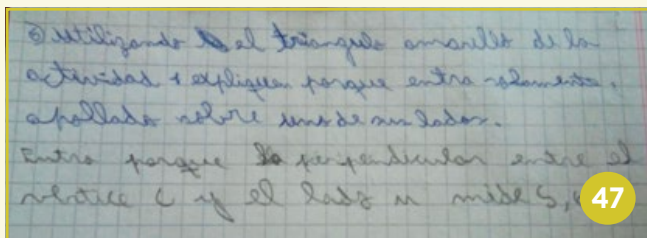 ③ utilizando el triangulo amarillo de la
actividad 1 expliquen porque entra solamente,
apollado sobre uno de sus lados.
Entra porque la perpendicular entre el
vértice C y el lado n mide 5,
47